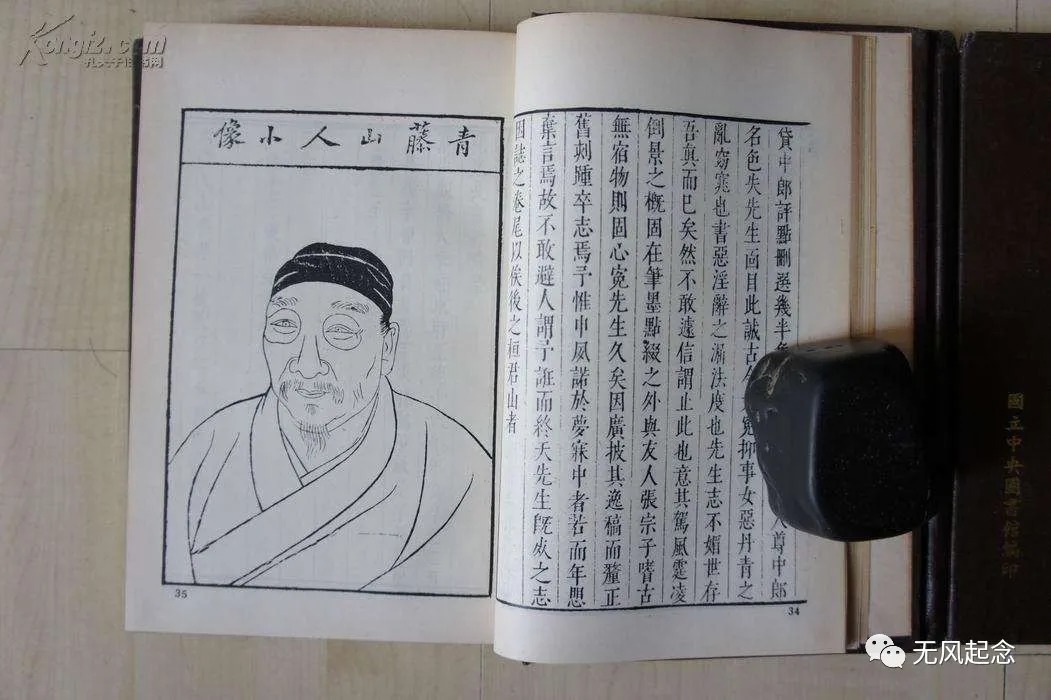 貸中郎評點刪選幾半
尊中郎
名色失先生面目此誠古
冤抑事女惡丹青之
亂窈窕也書惡淫辭之溷法度也先生志不媚世存
吾真而已矣然不敢遽信謂止此也意其駕風霆凌
倒景之概固在筆墨點綴之外與友人張宗子嗜古
無宿物則固心寃先生久矣因廣披其逸稿而釐正
舊刺踵卒志焉予惟申夙諾於夢寐中者若而年思
棄言焉故不敢避人謂予誑而終夭先生旣死之志
因誌之卷尾以俟後之桓君山者
34
青藤山人小像
35
國立中央圖書館編印
Kongfz.com
孔夫子旧书网
无风起念